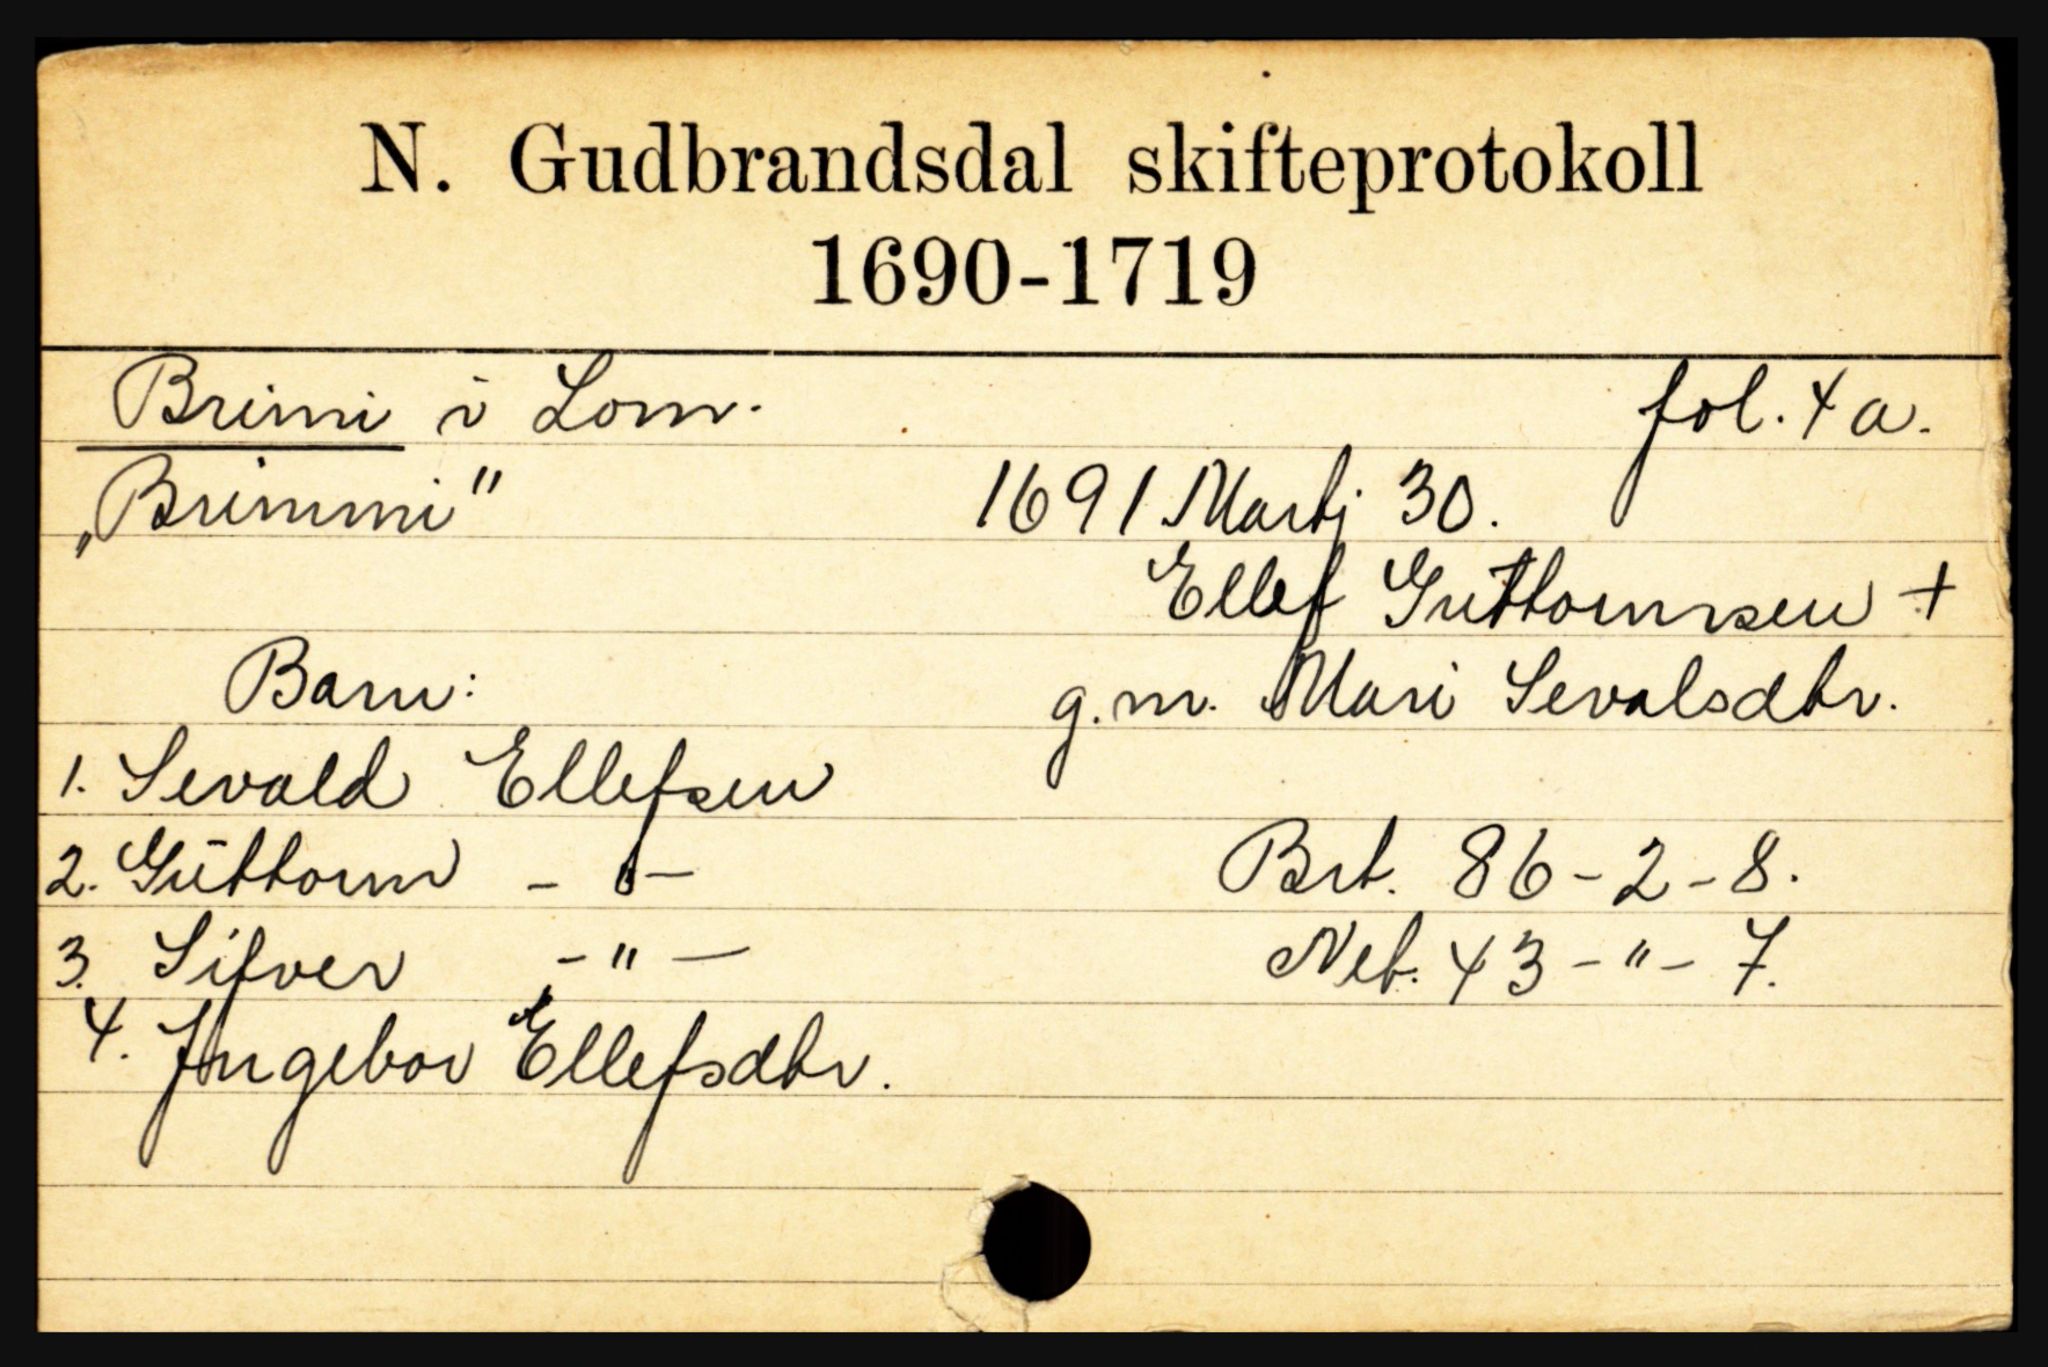 N. Gudbrandsdal skifteprotokoll
1690-1719
Brimi i Lom. fol. 4a.
„Brimmi" 1691 Martj 30.
Ellef Guttormsen +
Barn: g.m. Mari Sevalsdtr.
1. Sevald Ellefsen
2. Guttorm - " - Brt. 86 - 2 - 8.
3. Sifver - " - Net. 43 - " - 7.
4. Ingebor Ellefsdtr.